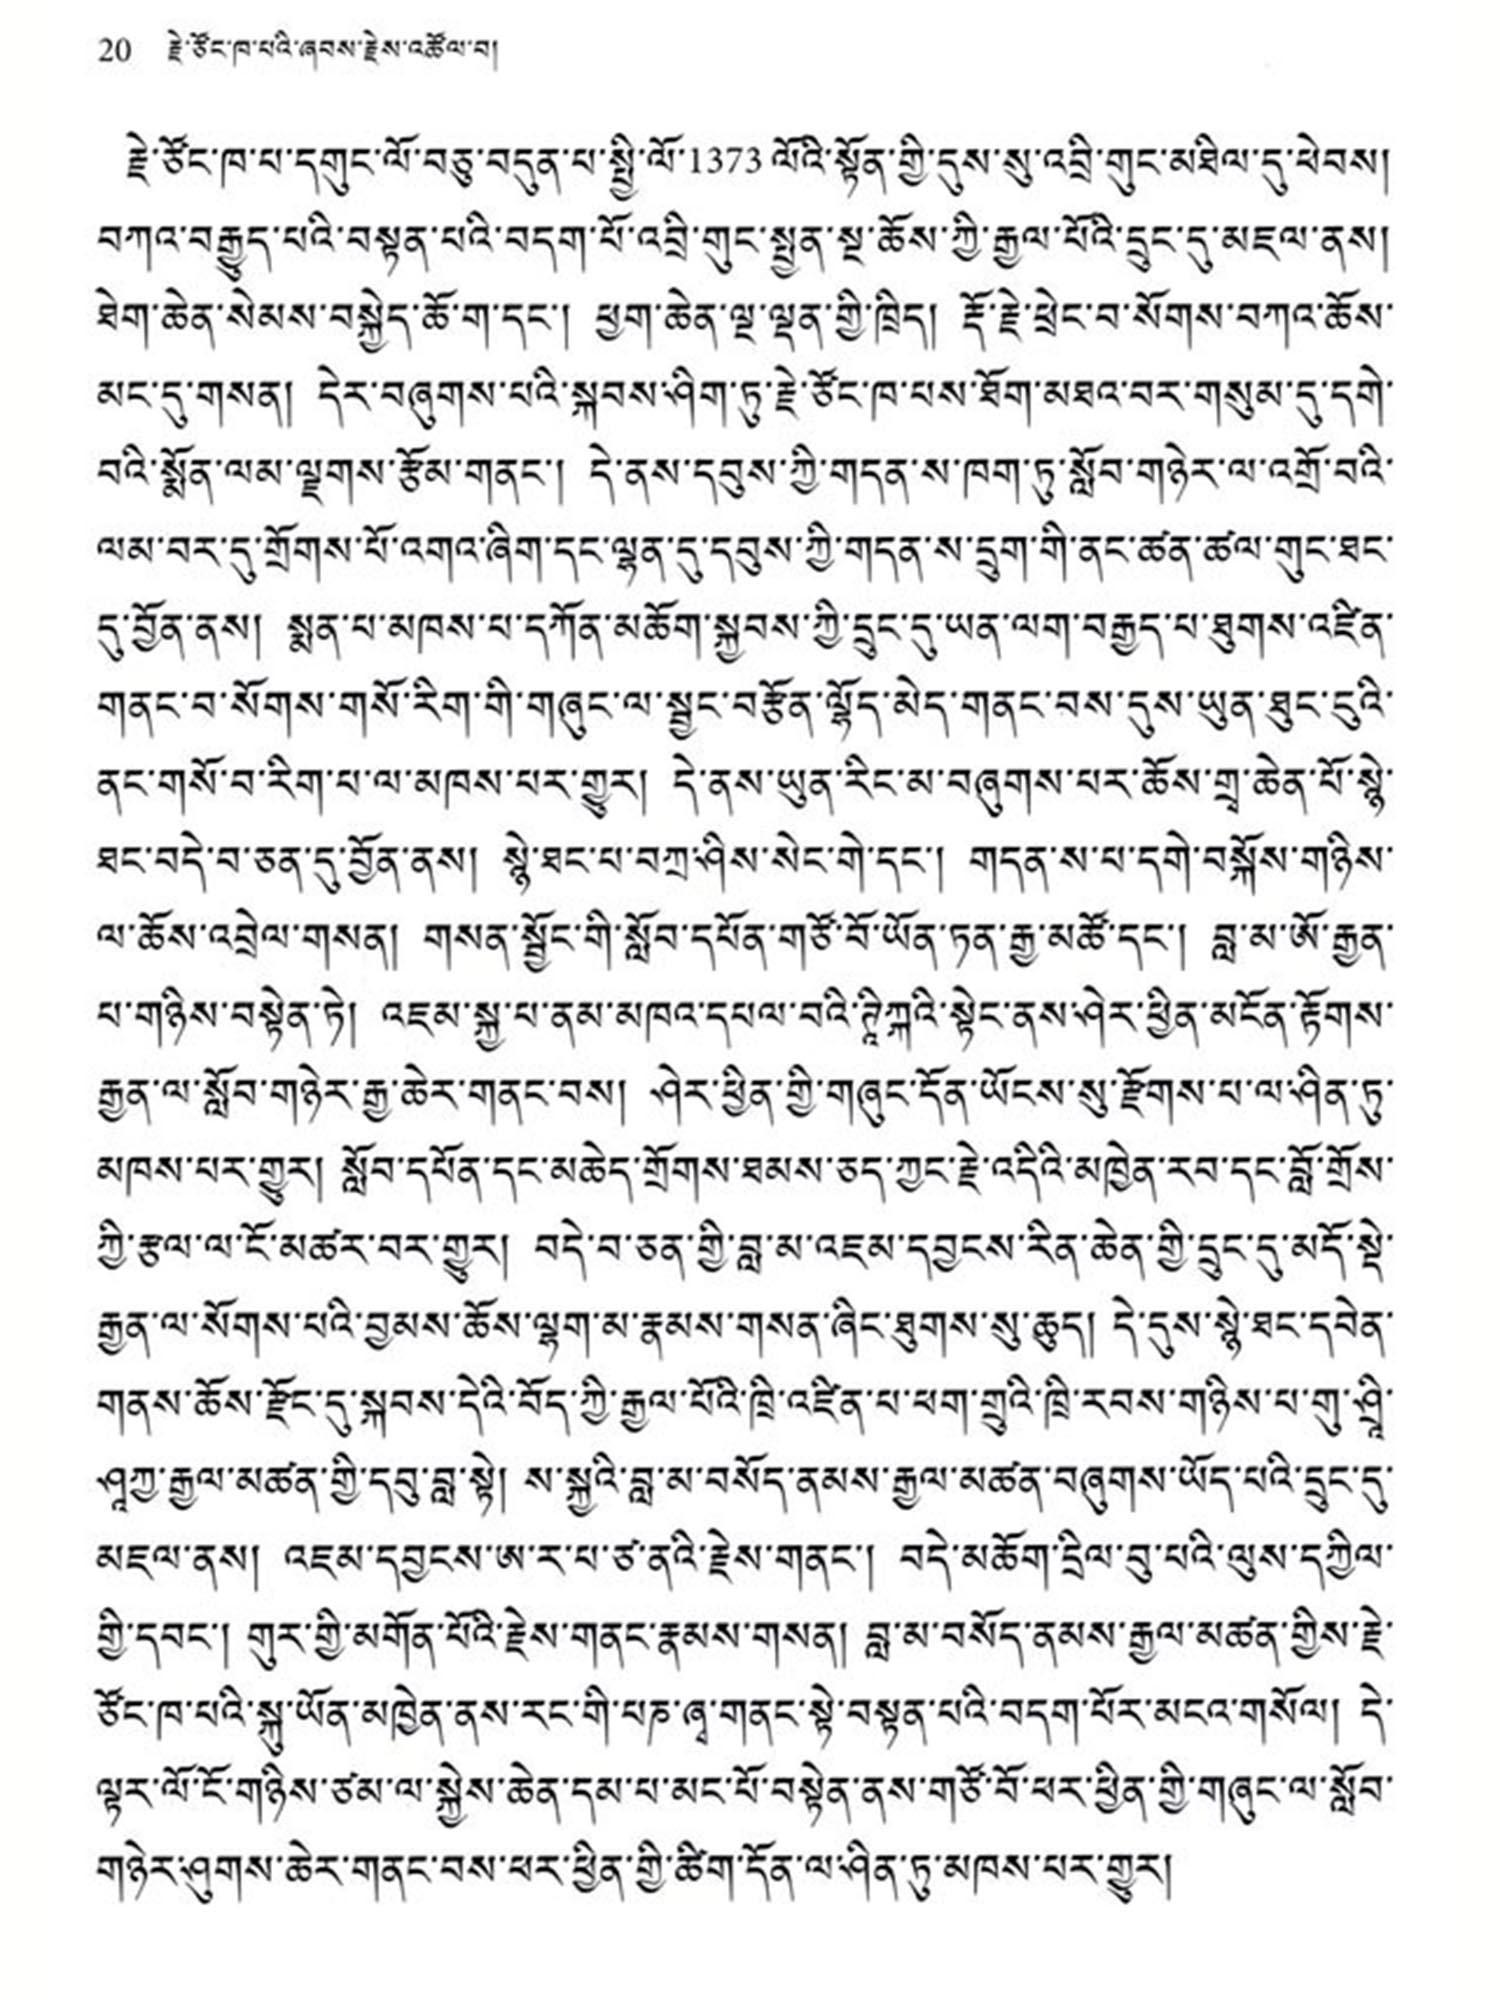 20 རྗེ་ཙོང་ཁ་པའི་ཞབས་རྗེས་འཚོལ་བ།
རྗེ་ཙོང་ཁ་པ་དགུང་ལོ་བཅུ་བདུན་པ་སྤྱི་ལོ་1373 ལོའི་སྟོན་གྱི་དུས་སུ་འབྲི་གུང་མཐིལ་དུ་ཕེབས།
བཀའ་བརྒྱུད་པའི་བསྟན་པའི་བདག་པོ་འབྲི་གུང་སྤྱན་སྔ་ཆོས་ཀྱི་རྒྱལ་པོའི་དྲུང་དུ་མཇལ་ནས།
ཐེག་ཆེན་སེམས་བསྐྱེད་ཆོ་ག་དང་། ཕྱག་ཆེན་ལྔ་ལྡན་གྱི་ཁྲིད། རྡོ་རྗེ་ཕྲེང་བ་སོགས་བཀའ་ཆོས་
མང་དུ་གསན། དེར་བཞུགས་པའི་སྐབས་ཤིག་ཏུ་རྗེ་ཙོང་ཁ་པས་ཐོག་མཐའ་བར་གསུམ་དུ་དགེ་
བའི་སྨོན་ལམ་ལྗགས་རྩོམ་གནང་། དེ་ནས་དབུས་ཀྱི་གདན་ས་ཁག་ཏུ་སློབ་གཉེར་ལ་འགྲོ་བའི་
ལམ་བར་དུ་གྲོགས་པོ་འགའ་ཞིག་དང་ལྷན་དུ་དབུས་ཀྱི་གདན་ས་དྲུག་གི་ནང་ཚན་ཚལ་གུང་ཐང་
དུ་བྱོན་ནས། སྨན་པ་མཁས་པ་དཀོན་མཆོག་སྐྱབས་ཀྱི་དྲུང་དུ་ཡན་ལག་བརྒྱད་པ་ཐུགས་འཛིན་
གནང་བ་སོགས་གསོ་རིག་གི་གཞུང་ལ་སྦྱང་བརྩོན་ལྷོད་མེད་གནང་བས་དུས་ཡུན་ཐུང་ངུའི་
ནང་གསོ་བ་རིག་པ་ལ་མཁས་པར་གྱུར། དེ་ནས་ཡུན་རིང་མ་བཞུགས་པར་ཆོས་གྲྭ་ཆེན་པོ་སྙེ་
ཐང་བདེ་བ་ཅན་དུ་བྱོན་ནས། སྙེ་ཐང་པ་བཀྲ་ཤིས་སེང་གེ་དང་། གདན་ས་པ་དགེ་བསྐོས་གཉིས་
ལ་ཆོས་འབྲེལ་གསན། གསན་སྦྱོང་གི་སློབ་དཔོན་གཙོ་བོ་ཡོན་ཏན་རྒྱ་མཚོ་དང་། བླ་མ་ཨོ་རྒྱན་
པ་གཉིས་བསྟེན་ཏེ། འཇམ་སྐྱ་པ་ནམ་མཁའ་དཔལ་བའི་ཊཱིཀྐའི་སྟེང་ནས་ཤེར་ཕྱིན་མངོན་རྟོགས་
རྒྱན་ལ་སློབ་གཉེར་རྒྱ་ཆེར་གནང་བས། ཤེར་ཕྱིན་གྱི་གཞུང་དོན་ཡོངས་སུ་རྫོགས་པ་ལ་ཤིན་ཏུ་
མཁས་པར་གྱུར། སློབ་དཔོན་དང་མཆེད་གྲོགས་ཐམས་ཅད་ཀྱང་རྗེ་འདིའི་མཁྱེན་རབ་དང་བློ་གྲོས་
ཀྱི་རྩལ་ལ་ངོ་མཚར་བར་གྱུར། བདེ་བ་ཅན་གྱི་བླ་མ་འཇམ་དབྱངས་རིན་ཆེན་གྱི་དྲུང་དུ་མདོ་སྡེ་
རྒྱན་ལ་སོགས་པའི་བྱམས་ཆོས་ལྷག་མ་རྣམས་གསན་ཞིང་ཐུགས་སུ་ཆུད། དེ་དུས་སྙེ་ཐང་དབེན་
གནས་ཆོས་རྫོང་དུ་སྐབས་དེའི་བོད་ཀྱི་རྒྱལ་པོའི་ཁྲི་འཛིན་པ་ཕག་གྲུའི་ཁྲི་རབས་གཉིས་པ་གུ་ཤྲཱི་
ཤཱཀྱ་རྒྱལ་མཚན་གྱི་དབུ་བླ་སྟེ། ས་སྐྱའི་བླ་མ་བསོད་ནམས་རྒྱལ་མཚན་བཞུགས་ཡོད་པའི་དྲུང་དུ་
མཇལ་ནས། འཇམ་དབྱངས་ཨ་ར་པ་ཙ་ནའི་རྗེས་གནང་། བདེ་མཆོག་དྲིལ་བུ་པའི་ལུས་དཀྱིལ་
གྱི་དབང་། གུར་གྱི་མགོན་པོའི་རྗེས་གནང་རྣམས་གསན། བླ་མ་བསོད་ནམས་རྒྱལ་མཚན་གྱིས་རྗེ་
ཙོང་ཁ་པའི་སྐུ་ཡོན་མཁྱེན་ནས་རང་གི་པཎ་ཞྭ་གནང་སྟེ་བསྟན་པའི་བདག་པོར་མངའ་གསོལ། དེ་
ལྟར་ལོ་ངོ་གཉིས་ཙམ་ལ་སྐྱེས་ཆེན་དམ་པ་མང་པོ་བསྟེན་ནས་གཙོ་བོ་ཕར་ཕྱིན་གྱི་གཞུང་ལ་སློབ་
གཉེར་ཤུགས་ཆེར་གནང་བས་ཕར་ཕྱིན་གྱི་ཚིག་དོན་ལ་ཤིན་ཏུ་མཁས་པར་གྱུར།